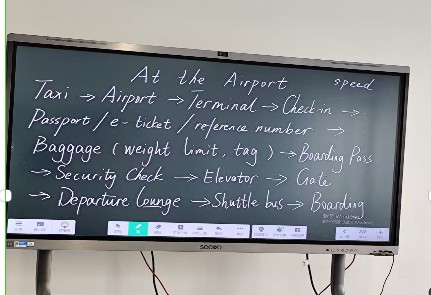 At the Airport speed
Taxi → Airport → Terminal → Check-in →
Passport / e-ticket / reference number →
Baggage ( weight limit, tag ) → Boarding Pass
→ Security Check → Elevator → Gate
→ Departure Lounge → Shuttle bus → Boarding